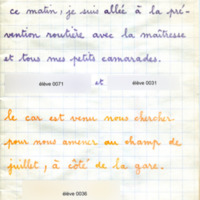 ce matin, je suis allée à la pré-
vention routière avec la maîtresse
et tous mes petits camarades.
élève 0071 et élève 0031
le car est venu nous chercher
pour nous amener au champ de
juillet, à côté de la gare.
élève 0036